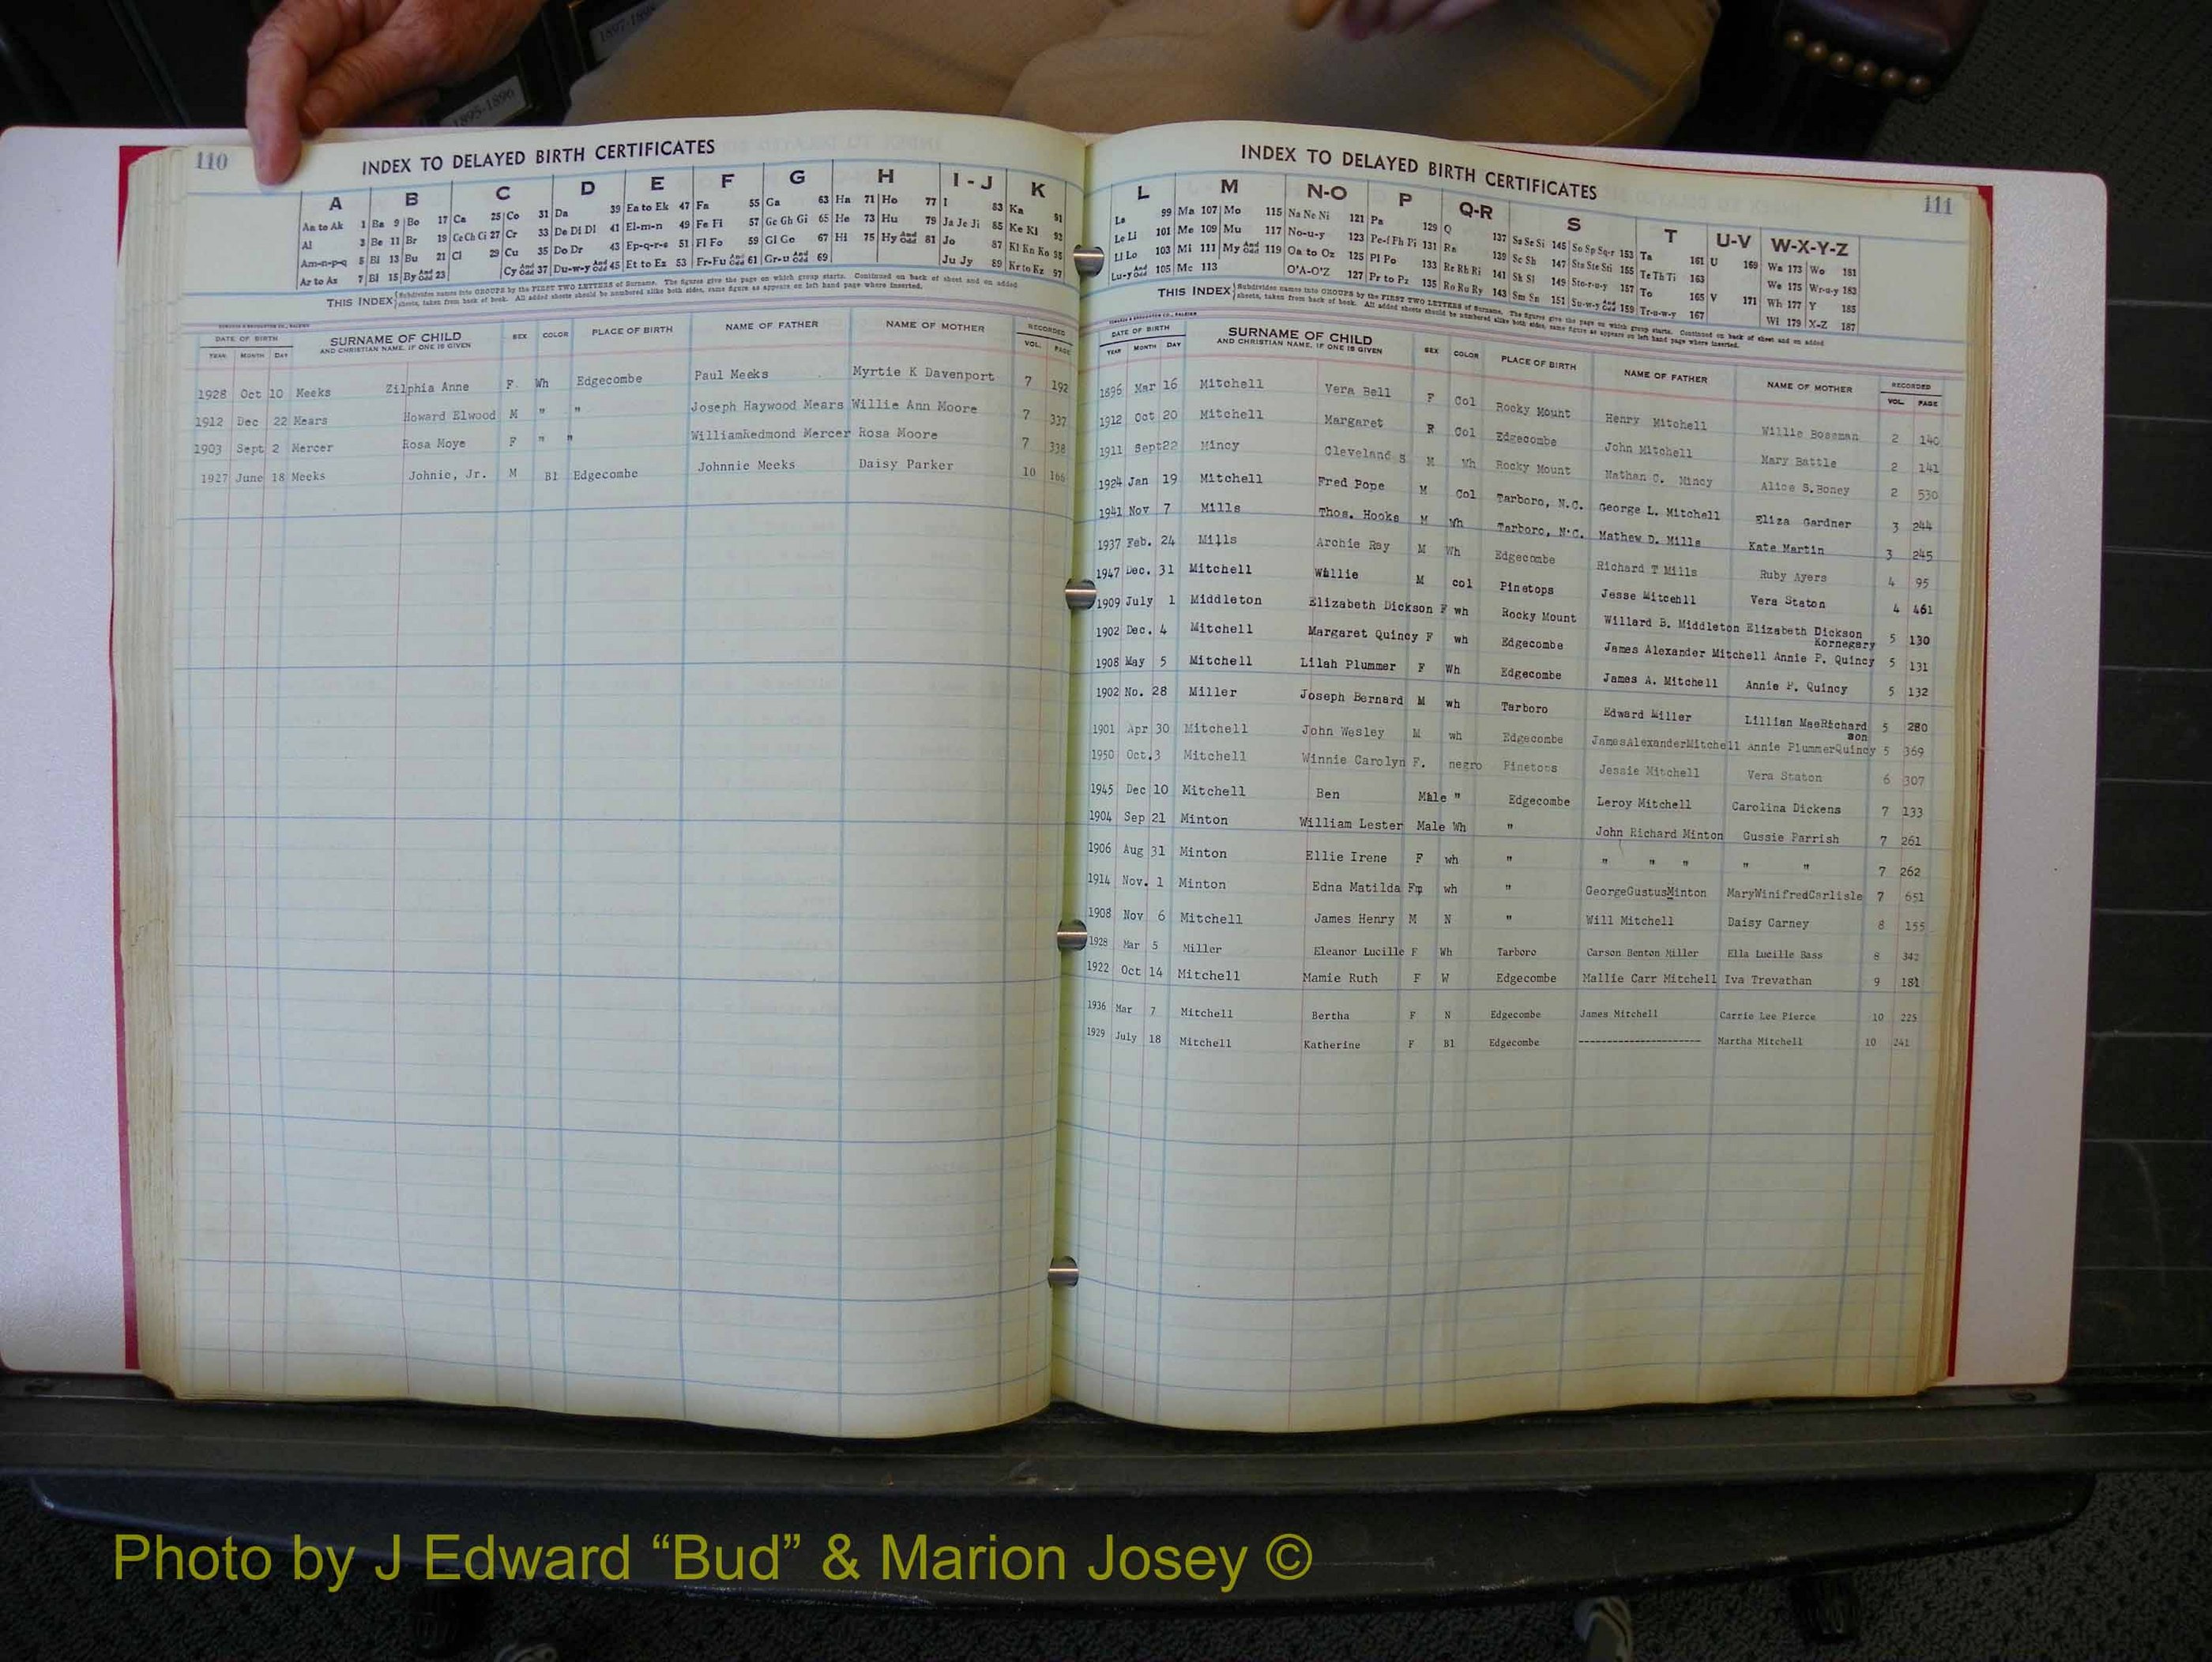 1897-1898
1895-1896
110
INDEX TO DELAYED BIRTH CERTIFICATES
A B C D E F G H I-J K
Aa to Ak 1 Ba 9 Bo 17 Ca 25 Co 31 Da 39 Ea to Ek 47 Fa 55 Ga 63 Ha 71 Ho 77 I 83 Ka 91
Al 3 Be 11 Br 19 Ce Ch Ci 27 Cr 33 De Di Dl 41 El-m-n 49 Fe Fi 57 Ge Gh Gi 65 He 73 Hu 79 Ja Je Ji 85 Ke Kl 93
Am-n-p-q 5 Bi 13 Bu 21 Cl 29 Cu 35 Do Dr 43 Ep-q-r-s 51 Fl Fo 59 Gl Go 67 Hi 75 Hy And Odd 81 Jo 87 Kl Kn Ko 95
Ar to Az 7 Bl 15 By And Odd 23 Cy And Odd 37 Du-w-y And Odd 45 Et to Ez 53 Fr-Fu And Odd 61 Gr-u And Odd 69 Ju Jy 89 Kr to Kz 97
THIS INDEX Subdivides names into GROUPS by the FIRST TWO LETTERS of Surname. The figures give the page on which group starts. Continued on back of sheet and on added
sheets, taken from back of book. All added sheets should be numbered alike both sides, same figure as appears on left hand page where inserted.
DATE OF BIRTH SURNAME OF CHILD SEX COLOR PLACE OF BIRTH NAME OF FATHER NAME OF MOTHER RECORDED
YEAR MONTH DAY AND CHRISTIAN NAME, IF ONE IS GIVEN VOL. PAGE
1928 Oct 10 Meeks Zilphia Anne F Wh Edgecombe Paul Meeks Myrtie K Davenport 7 192
1912 Dec 22 Mears Howard Elwood M " " Joseph Haywood Mears Willie Ann Moore 7 337
1903 Sept 2 Mercer Rosa Moye F " " WilliamRedmond Mercer Rosa Moore 7 338
1927 June 18 Meeks Johnie, Jr. M Bl Edgecombe Johnnie Meeks Daisy Parker 10 166
111
INDEX TO DELAYED BIRTH CERTIFICATES
L M N-O P Q-R S T U-V W-X-Y-Z
La 99 Ma 107 Mo 115 Na Ne Ni 121 Pa 129 Q 137 Sa Se Si 145 So Sp Sq-r 153 Ta 161 U 169 Wa 173 Wo 181
Le Li 101 Me 109 Mu 117 No-u-y 123 Pe-f Ph Pi 131 Ra 139 Sc Sh 147 Sta Ste Sti 155 Te Th Ti 163 We 175 Wr-u-y 183
Ll Lo 103 Mi 111 My And Odd 119 Oa to Oz 125 Pl Po 133 Re Rh Ri 141 Sk Sl 149 Sto-r-u-y 157 To 165 V 171 Wh 177 Y 185
Lu-y And Odd 105 Mc 113 O'A-O'Z 127 Pr to Pz 135 Ro Ru Ry 143 Sm Sn 151 Su-w-y And Odd 159 Tr-u-w-y 167 Wi 179 X-Z 187
THIS INDEX Subdivides names into GROUPS by the FIRST TWO LETTERS of Surname. The figures give the page on which group starts. Continued on back of sheet and on added
sheets, taken from back of book. All added sheets should be numbered alike both sides, same figure as appears on left hand page where inserted.
DATE OF BIRTH SURNAME OF CHILD SEX COLOR PLACE OF BIRTH NAME OF FATHER NAME OF MOTHER RECORDED
YEAR MONTH DAY AND CHRISTIAN NAME, IF ONE IS GIVEN VOL. PAGE
1896 Mar 16 Mitchell Vera Bell F Col Rocky Mount Henry Mitchell Willie Bossman 2 140
1912 Oct 20 Mitchell Margaret F Col Edgecombe John Mitchell Mary Battle 2 141
1911 Sept22 Mincy Cleveland S M Wh Rocky Mount Nathan C. Mincy Alice S.Boney 2 530
1924 Jan 19 Mitchell Fred Pope M Col Tarboro, N.C. George L. Mitchell Eliza Gardner 3 244
1941 Nov 7 Mills Thos. Hooks M Wh Tarboro, N.C. Mathew D. Mills Kate Martin 3 245
1937 Feb. 24 Mills Archie Ray M Wh Edgecombe Richard T Mills Ruby Ayers 4 95
1947 Dec. 31 Mitchell Willie M col Pinetops Jesse Mitcehll Vera Staton 4 461
1909 July 1 Middleton Elizabeth Dickson F wh Rocky Mount Willard B. Middleton Elizabeth Dickson 5 130
Kornegary
1902 Dec. 4 Mitchell Margaret Quincy F wh Edgecombe James Alexander Mitchell Annie P. Quincy 5 131
1908 May 5 Mitchell Lilah Plummer F Wh Edgecombe James A. Mitchell Annie P. Quincy 5 132
1902 No. 28 Miller Joseph Bernard M wh Tarboro Edward Miller Lillian MaeRichard 5 280
son
1901 Apr 30 Mitchell John Wesley M wh Edgecombe JamesAlexanderMitchell Annie PlummerQuincy 5 369
1950 Oct.3 Mitchell Winnie Carolyn F. negro Pinetops Jessie Mitchell Vera Staton 6 307
1945 Dec 10 Mitchell Ben Male " Edgecombe Leroy Mitchell Carolina Dickens 7 133
1904 Sep 21 Minton William Lester Male Wh " John Richard Minton Gussie Parrish 7 261
1906 Aug 31 Minton Ellie Irene F wh " " " " " " 7 262
1914 Nov. 1 Minton Edna Matilda Fm wh " GeorgeGustusMinton MaryWinifredCarlisle 7 651
1908 Nov 6 Mitchell James Henry M N " Will Mitchell Daisy Carney 8 155
1928 Mar 5 Miller Eleanor Lucille F Wh Tarboro Carson Benton Miller Ella Lucille Bass 8 342
1922 Oct 14 Mitchell Mamie Ruth F W Edgecombe Mallie Carr Mitchell Iva Trevathan 9 181
1936 Mar 7 Mitchell Bertha F N Edgecombe James Mitchell Carrie Lee Pierce 10 225
1929 July 18 Mitchell Katherine F Bl Edgecombe -------------------- Martha Mitchell 10 241
Photo by J Edward “Bud” & Marion Josey ©